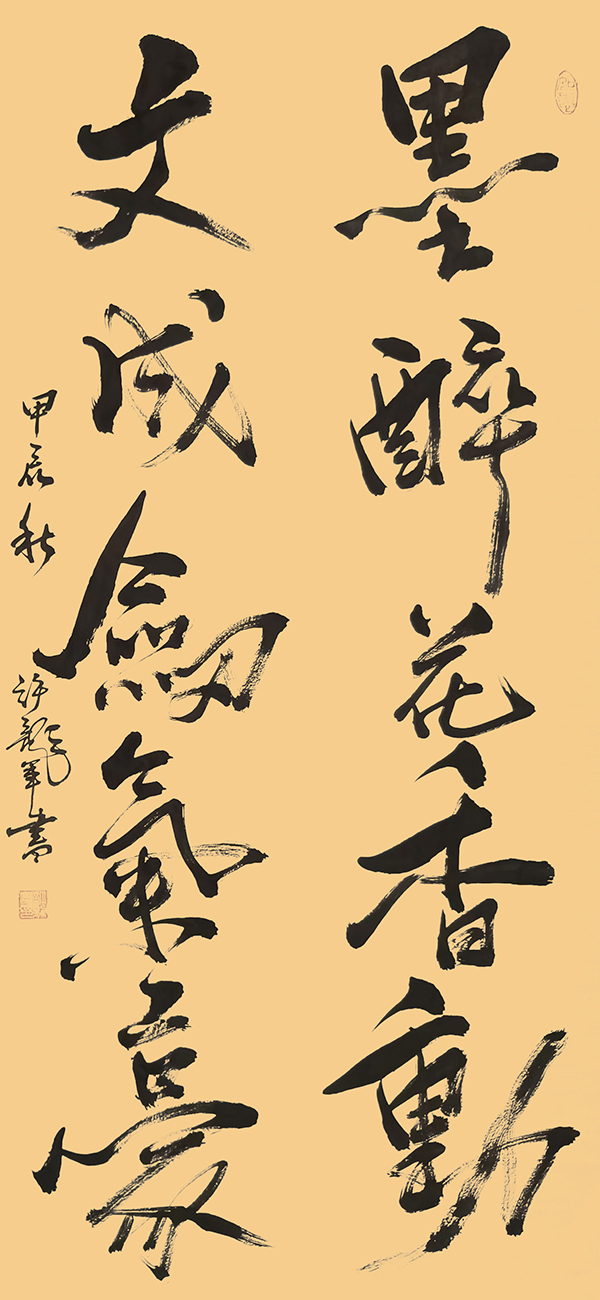 墨醉花香動
文成劍氣豪
甲辰秋
許龍軍書